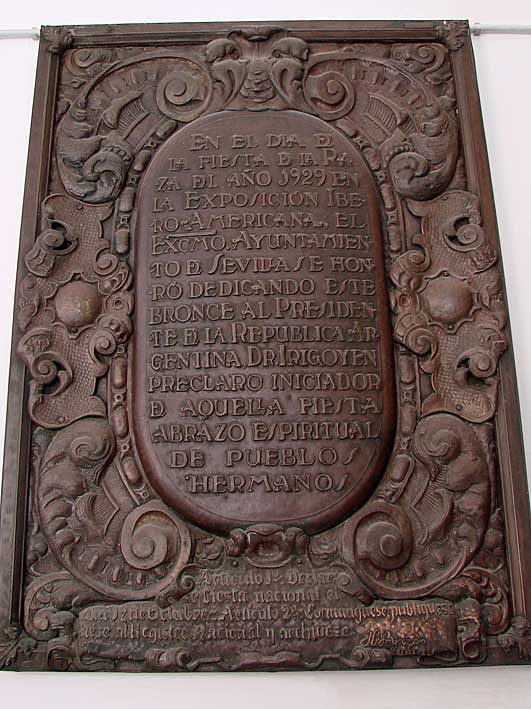 EN EL DIA E
LA FIESTA E LA RA-
ZA DL AÑO 1929 EN
LA EXPOSICIÓN IBE-
RO-AMERICANA, EL
EXCMO, AYUNTAMIEN
TO E SEVILLA SE HON
RÓ DEDICANDO ESTE
BRONCE AL PRESIDEN-
TE E LA REPUBLICA AR
GENTINA, DR. IRIGOYEN
PRECLARO INICIADOR
E AQUELLA FIESTA
ABRAZO ESPIRITUAL
DE PUEBLOS
HERMANOS
Articulo 1º
fiesta nacional el
12 de Octubre Articulo 2º Comuniquese publiquese
dese al Registro Nacional y archivese